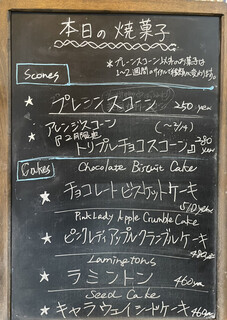 本日の焼菓子
*プレーンスコーン以外のお菓子は
1〜2週間のサイクルで種類が変わります。
Scones
★ プレーンスコーン 250 yen
★ アレンジスコーン (〜2/14)
『2月限定
トリプルチョコスコーン』 280 yen
Cakes
Chocolate Biscuit Cake
★ チョコレートビスケットケーキ
510 yen
Pink Lady Apple Crumble Cake
★ ピンクレディアップルクランブルケーキ
490 yen
Lamingtons
★ ラミントン 460 yen
Seed Cake
★ キャラウェイシードケーキ 460 yen